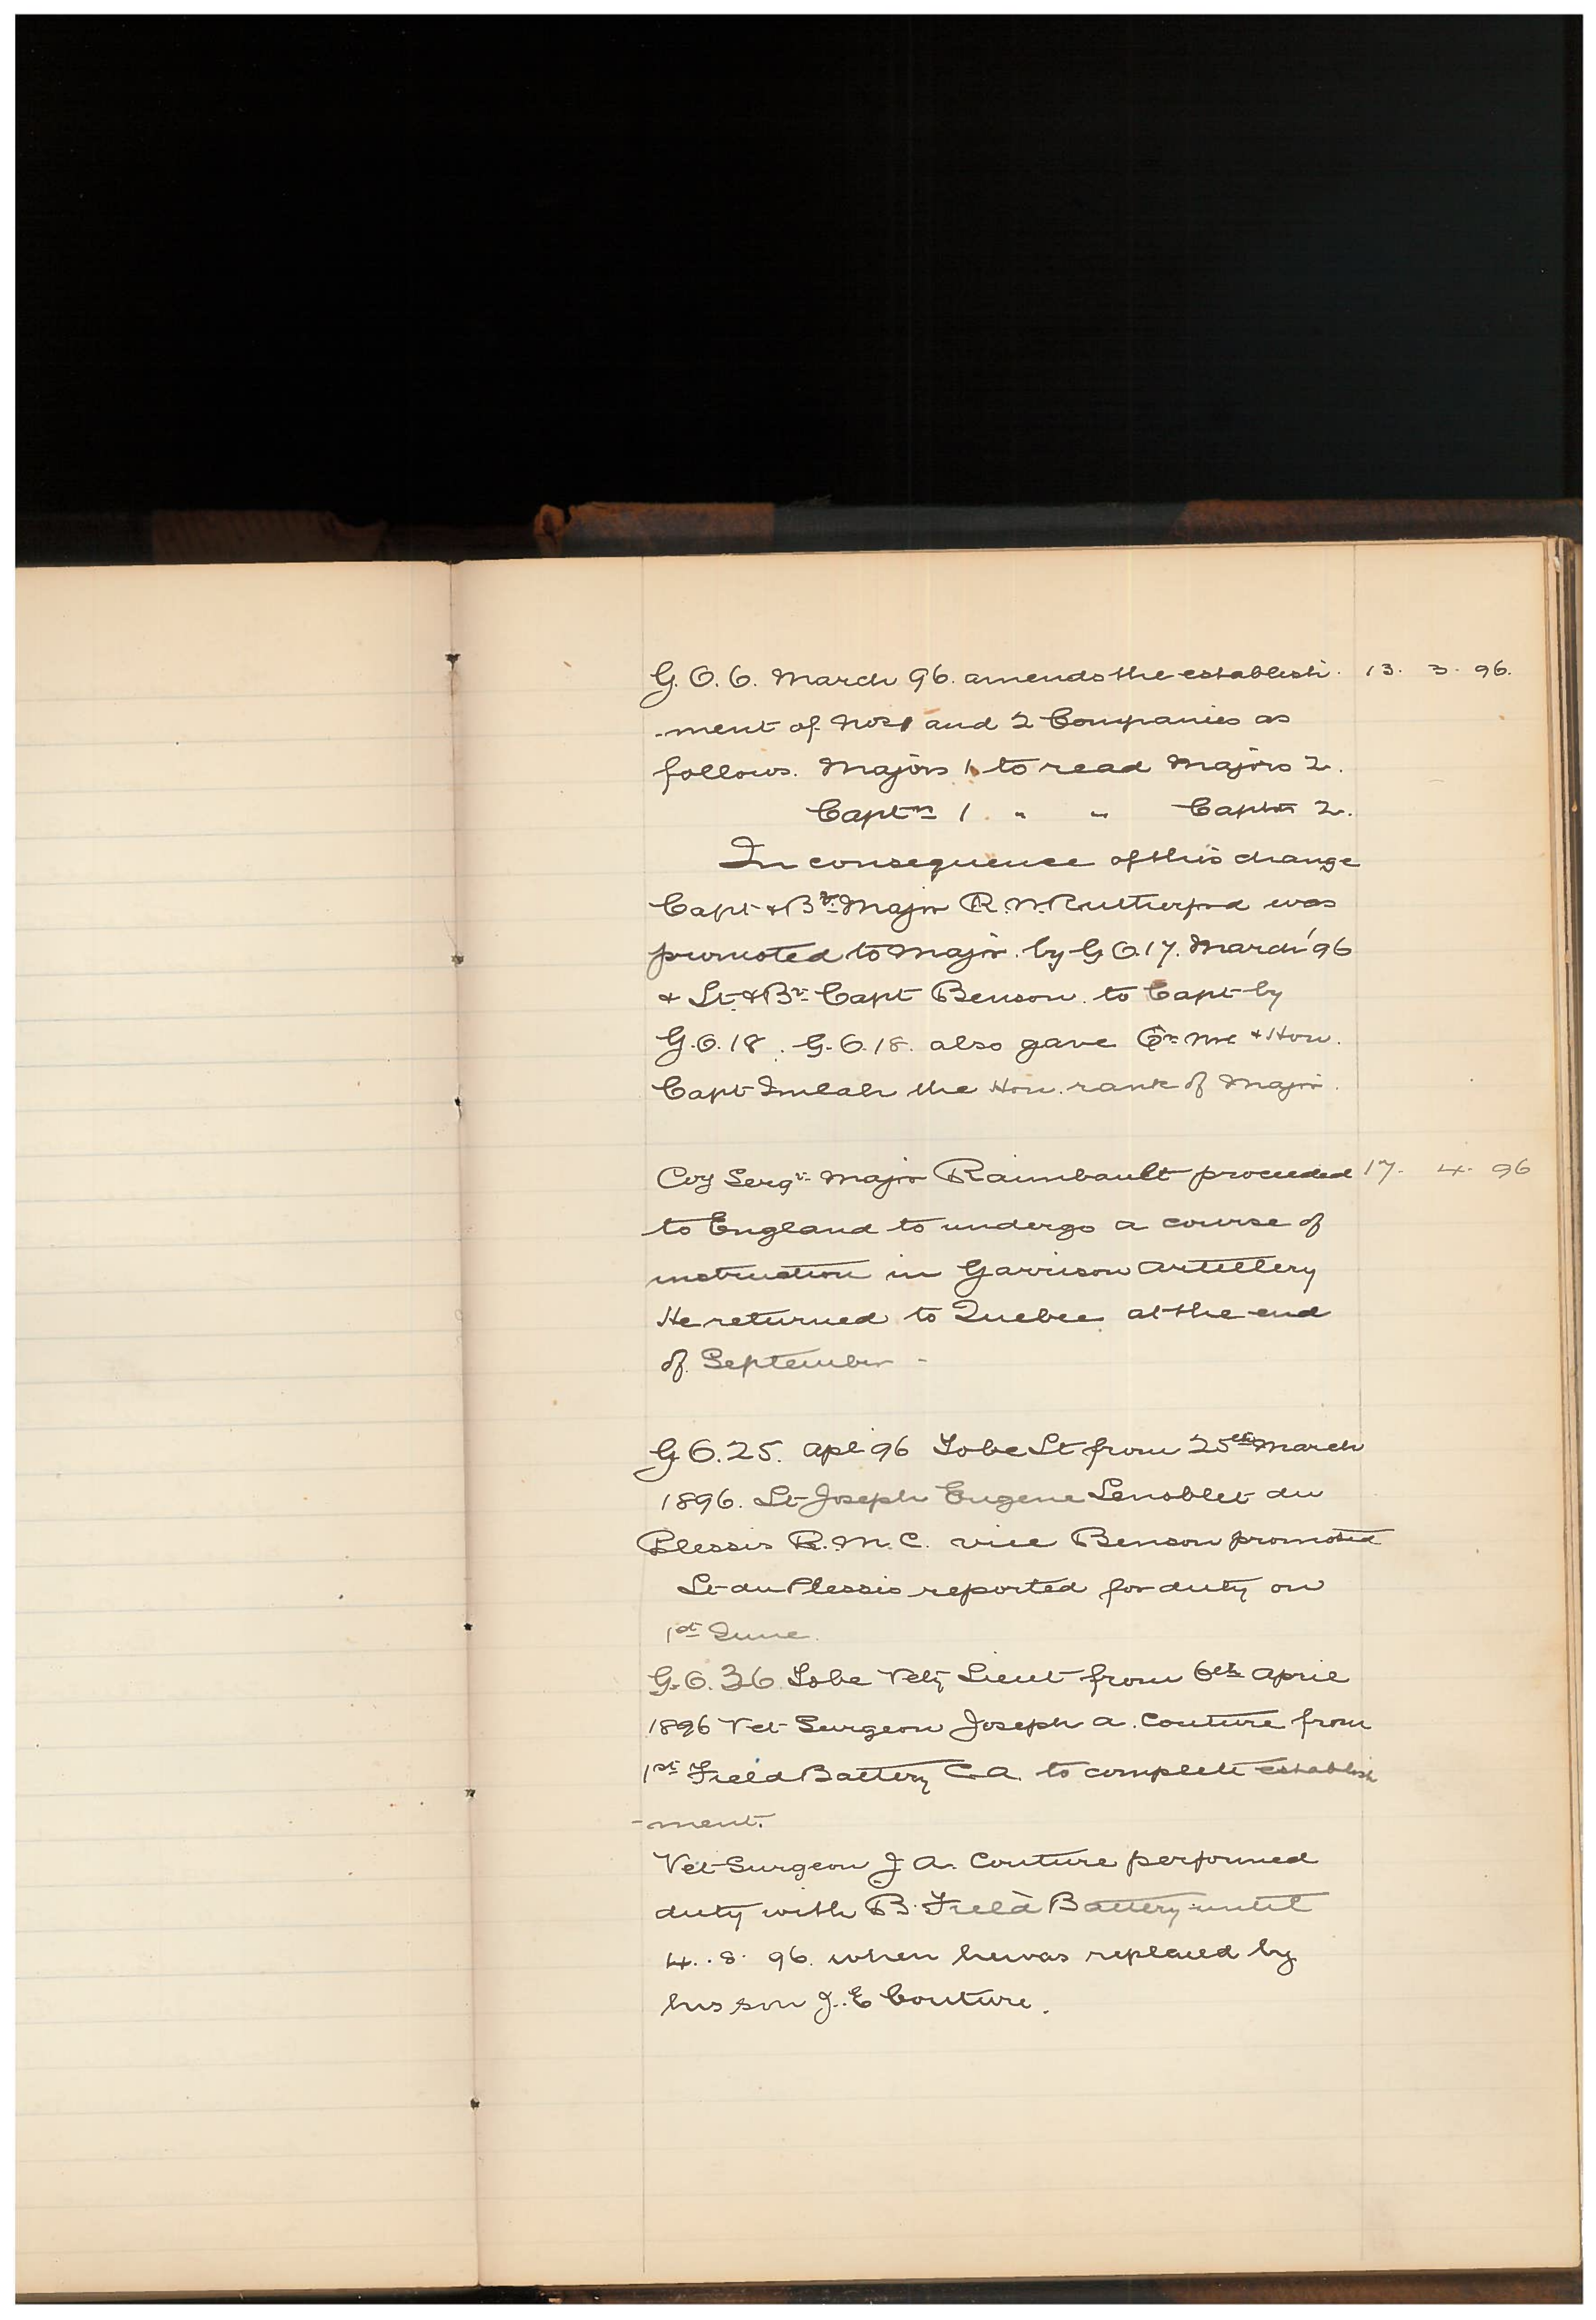 G.O.6. March 96. amends the establish. 13. 3. 96.
-ment of Nos 1 and 2 Companies as
follows. Majors 1 to read Majors 2.
Captns 1. " " Captns 2.
In consequence of this change
Capt & Bt. Major R.W. Rutherford was
promoted to Major. by G.O. 17. March '96
& Lt. & Bt. Capt Benson. to Capt by
G.O. 18. G.O. 18. also gave Qr. Mr & Hon.
Capt Imlah the Hon. rank of Major.
Coy Sergt. Major Raimbault proceeded 17. 4. 96
to England to undergo a course of
instruction in Garrison Artillery
He returned to Quebec at the end
of September -
G O. 25. Apl 96 To be Lt from 25th March
1896. Lt Joseph Eugene Lenoblet du
Plessis R.M.C. vice Benson promoted
Lt du Plessis reported for duty on
1st June.
G.O. 36 To be Vety Lieut from 6th April
1896 Vet Surgeon Joseph A. Couture from
1st Field Battery C.A. to complete establish
-ment.
Vet Surgeon J A. Couture performed
duty with B. Field Battery until
4. .8. 96. when he was replaced by
his son J. E Couture.